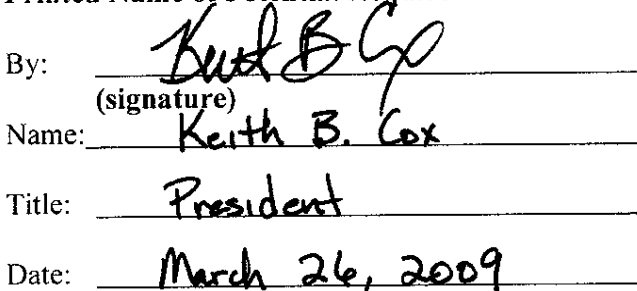 Printed Name of
By: Keith B Cox
(signature)
Name: Keith B. Cox
Title: President
Date: March 26, 2009